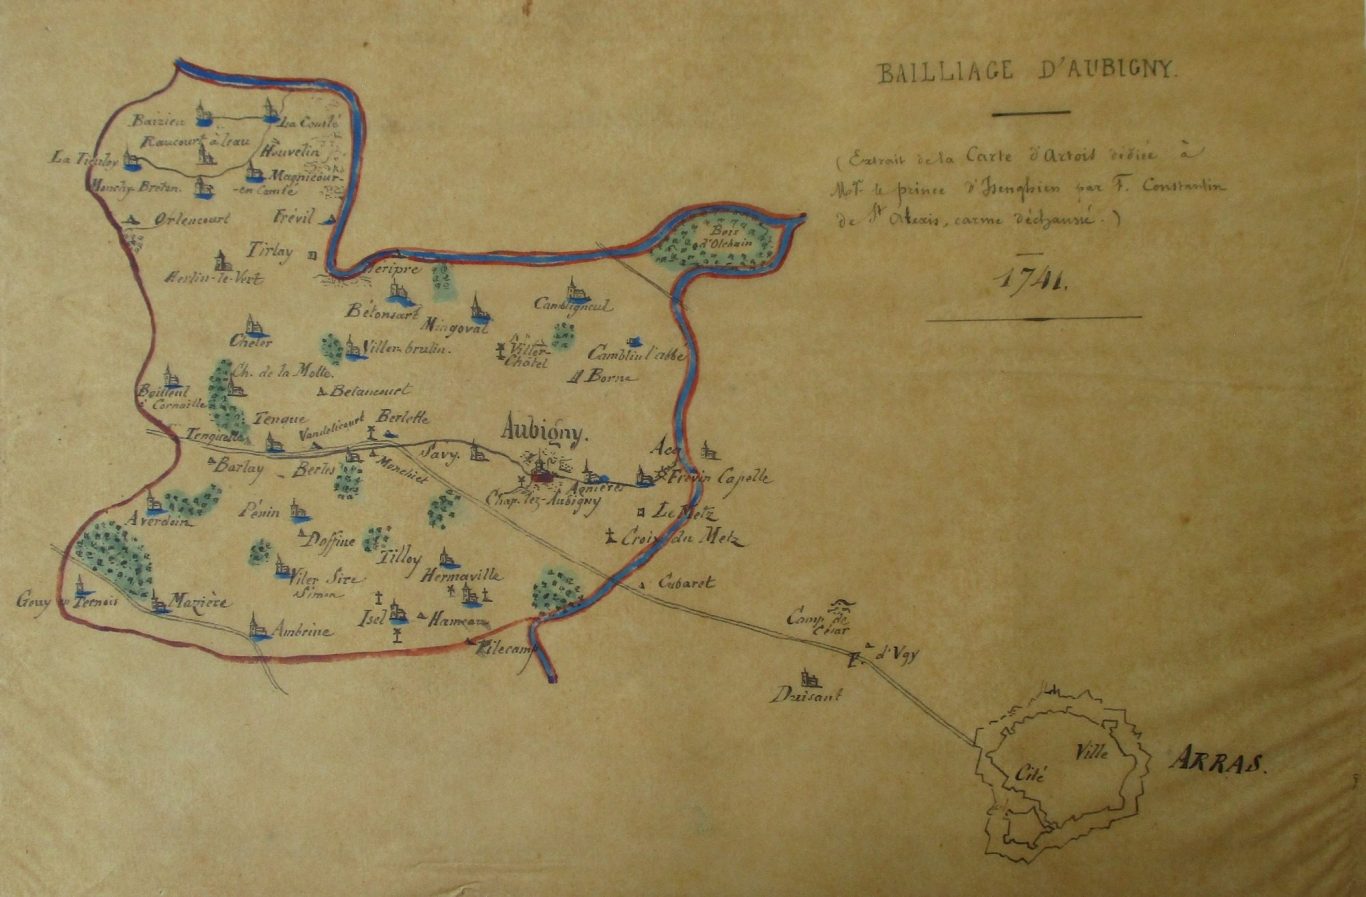 BAILLIAGE D'AUBIGNY.
(Extrait de la Carte d'Artois dédiée à
Mr. le prince d'Isenghien par F. Constantin
de St Alexis, carme déchaussé.)
1741.
Baizieu
La Comté
Raucourt à l'eau
Houvelin
La Tieuloy
Monchy-Breton
Magnicour-
-en Comté
Orlencourt
Frévil
Tirlay
Herlin-le-Vert
Bois
d'Olehain
Béthonsart
Mingoval
Cambligneul
Cheler
Viller-brulin.
Viller-
Châtel
Camblin l'abbé
Borne
Ch. de la Motte.
Bailleul
Cornaille
Betancourt
Tenque
Vandelicourt
Berlette
Tenquette
Aubigny.
Savy.
Acq
Barlay
Berles
Monchiet
Agnières
Frévin Capelle
Chap. lez-Aubigny
Averdoin
Pénin
Le Metz
Doffine
Croix du Metz
Tilloy
Hermaville
Viler Sire
Simon
Cabaret
Gouy en Ternois
Mazière
Isel
Hameau
Ambrine
Filecamp
Camp de
César
F. d'Ugy
Duisant
Ville
Cité
ARRAS.